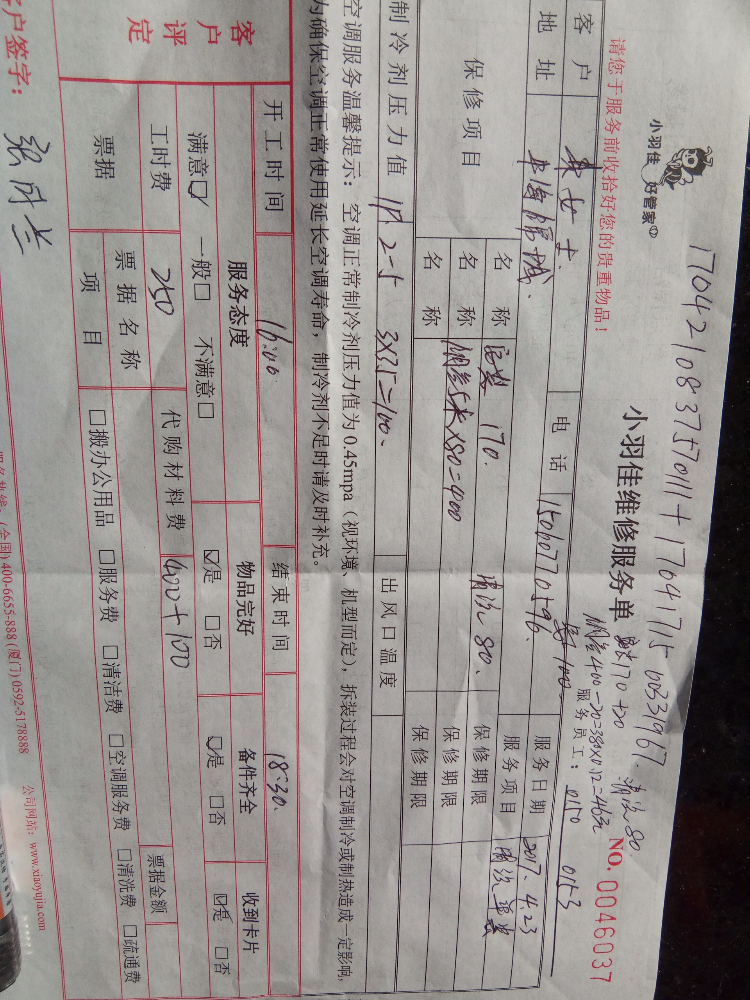 1704210837570111+17041715 00331967.
小羽佳
好管家
小羽佳维修服务单
170+20 清洗80.
铜管400-20=380×0.12=46元
NO. 0046037
请您于服务前收拾好您的贵重物品!
服务员工: 0170 0153
客户 女士. 电话 15060770596. 服务日期 2017.4.23
地址 服务项目 清洗
保修项目 名称 170. 清洗80. 保修期限
名称 铜管5米×80=400 保修期限
名称 保修期限
制冷剂压力值 1P. 2-5 3×35=100. 出风口温度
空调服务温馨提示:空调正常制冷剂压力值为0.45mpa(视环境、机型而定),拆装过程会对空调制冷或制热造成一定影响,
为确保空调正常使用延长空调寿命,制冷剂不足时请及时补充。
开工时间 16:00. 结束时间 18:30.
客户评定 服务态度 物品完好 备件齐全 收到卡片
满意☑ 一般□ 不满意□ ☑是 □否 ☑是 □否 ☑是 □否
工时费 250 代购材料费 400+100
票据 票据名称 票据金额
项目 □搬办公用品 □服务费 □清洁费 □空调服务费 □清洗费 □疏通费
客户签字:
(全国)400-6655-888(厦门)0592-5178888 公司网站:www.xiaoyujia.com